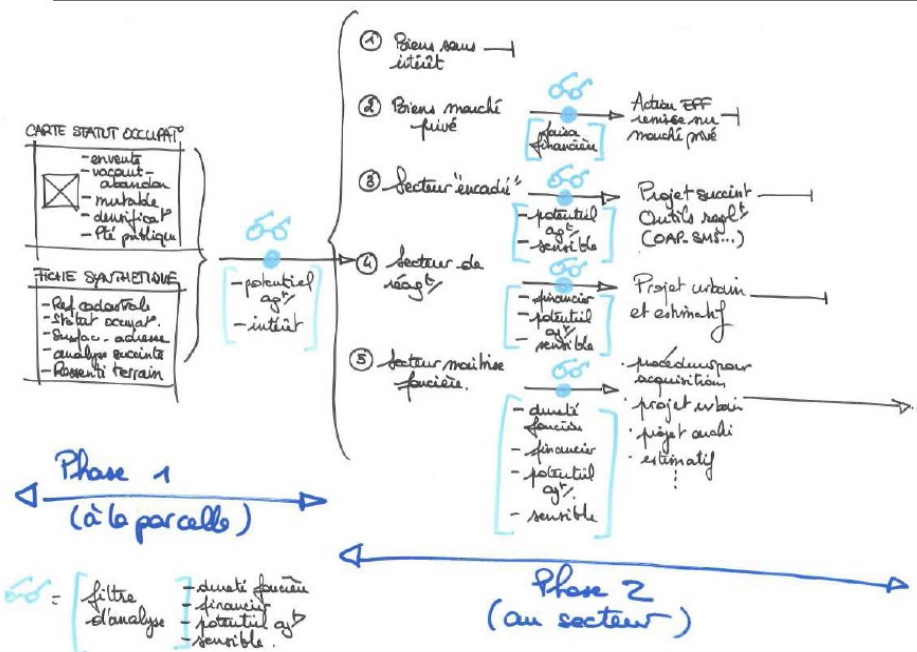 CARTE STATUT OCCUPAT°
- en vente
- vacant -
abandon
- mutable
- densificat°
- Pté publique
FICHE SYNTHETIQUE
- Ref cadastrale
- Statut occupat.
- Surfac. adresse
- analyse succinte
- Ressenti terrain
- potentiel
agt/
- intérêt
① Biens sans
intérêt
② Biens marché
privé
[faisa
financière]
Action EPF
remise sur
marché privé
③ Secteur "encadré"
- potentiel
agt/
- sensible
Projet succint
Outils reglt
(OAP-SMS...)
④ Secteur de
réagt/
- financier
- potentiel
agt/
- sensible
Projet urbain
et estimatif
⑤ Secteur maitrise
foncière.
- dureté
foncière
- financier
- potentiel
agt/
- sensible
. procédures pour
acquisitions
. projet urbain
. projet archi
. estimatif
Phase 1
(à la parcelle)
Phase 2
(au secteur)
= [filtre
d'analyse]
- dureté foncière
- financier
- potentiel agt
- sensible.